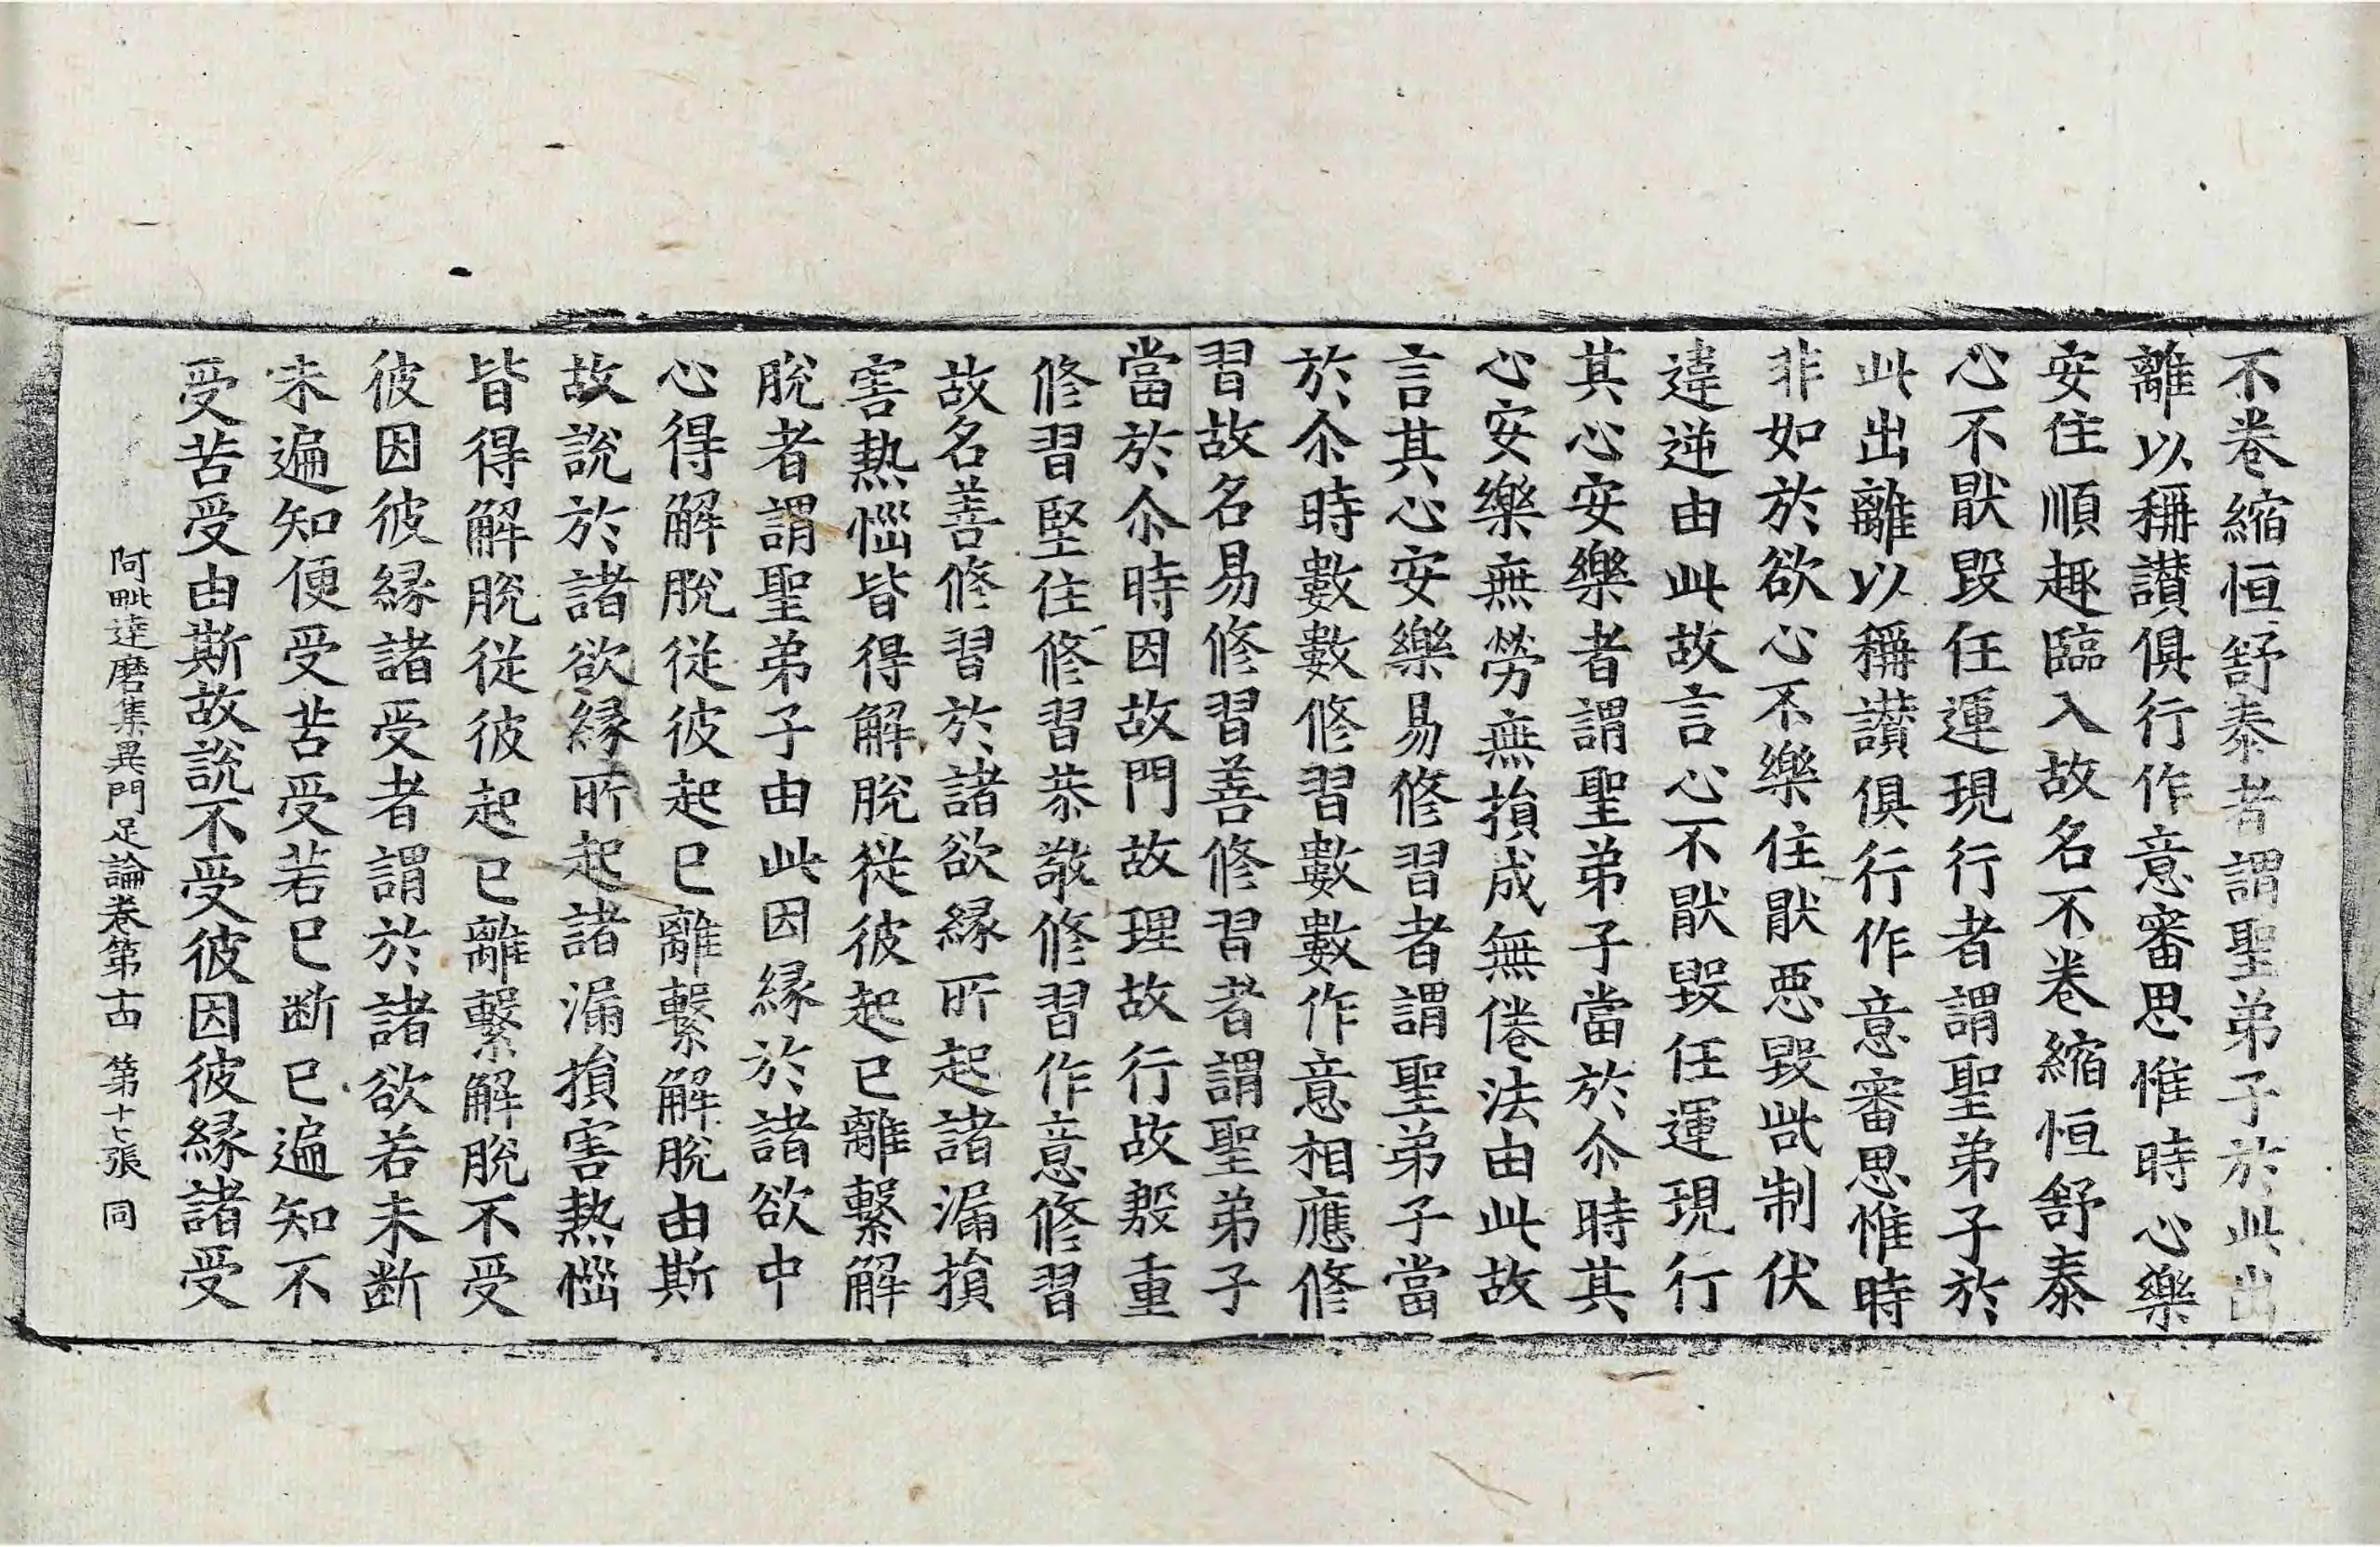 不卷縮恒舒泰者謂聖弟子於此出
離以稱讃俱行作意審思惟時心樂
安住順趣臨入故名不卷縮恒舒泰
心不猒毀任運現行者謂聖弟子於
此出離以稱讃俱行作意審思惟時
非如於欲心不樂住猒惡毀呰制伏
違逆由此故言心不猒毀任運現行
其心安樂者謂聖弟子當於尒時其
心安樂無勞無損成無倦法由此故
言其心安樂易修習者謂聖弟子當
於尒時數數修習數數作意相應修
習故名易修習善修習者謂聖弟子
當於尒時因故門故理故行故殷重
修習堅住修習恭敬修習作意修習
故名善修習於諸欲縁所起諸漏損
害熱惱皆得解脫從彼起已離繫解
脫者謂聖弟子由此因縁於諸欲中
心得解脫從彼起已離繫解脫由斯
故說於諸欲縁所起諸漏損害熱惱
皆得解脫從彼起已離繫解脫不受
彼因彼縁諸受者謂於諸欲若未断
未遍知便受苦受若已断已遍知不
受苦受由斯故說不受彼因彼縁諸受
阿毗達磨集異門足論卷第十四 第十七張 同